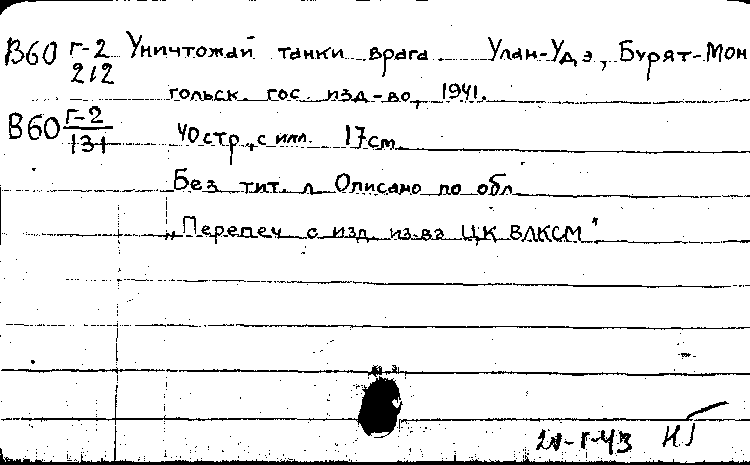 В60 Г-2 Уничтожай танки врага. Улан-Удэ, Бурят-Мон
212 гольск. гос. изд-во, 1941.
В60 Г-2
131 40стр., с илл. 17см.
Без тит. л. Описано по обл.
„Перепеч с изд. из-ва ЦК ВЛКСМ"